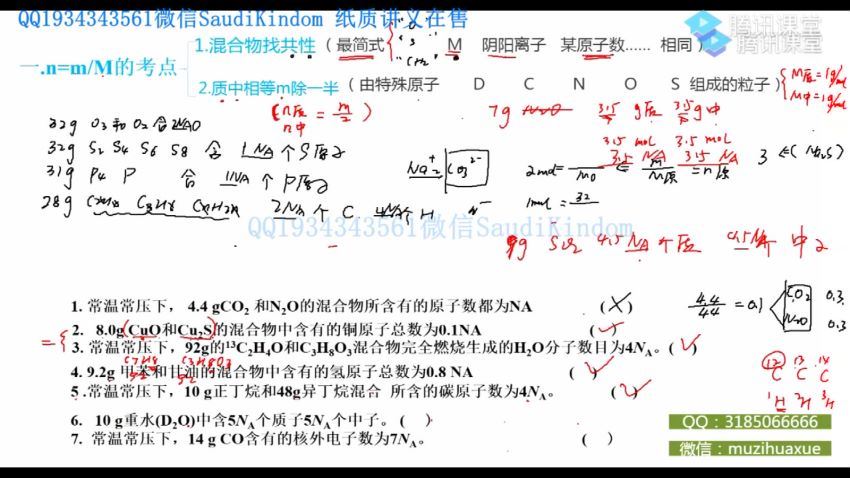 QQ1934343561微信SaudiKindom 纸质讲义在售
腾讯课堂
腾讯课堂
一.n=m/M的考点
1.混合物找共性（最简式 M 阴阳离子 某原子数...... 相同）
2.质中相等m除一半（由特殊原子 D C N O S 组成的粒子）
32g O3和O2含2NAO
32g S2 S4 S6 S8 含 1NA个S原子
31g P4 P 含 1NA个P原子
28g C2H4 C3H6 CnH2n 2NA个C 4NA个H
7g
3.5 mol 3.5 mol
3.5 NA 3.5 NA
QQ1934343561微信SaudiKindom
1. 常温常压下， 4.4 gCO2 和N2O的混合物所含有的原子数都为NA (×)
4.4/44 = 0.1 CO2 0.3
N2O 0.3
2. 8.0g(CuO和Cu2S的混合物中含有的铜原子总数为0.1NA (✓)
3. 常温常压下，92g的¹³C2H4O和C3H8O3混合物完全燃烧生成的H2O分子数目为4NA。(✓)
C7H8 C3H8O3
92 92
4. 9.2g 甲苯和甘油的混合物中含有的氢原子总数为0.8 NA (✓)
5 .常温常压下，10 g正丁烷和48g异丁烷混合 所含的碳原子数为4NA。 (✓)
12C 13C 14C
1H 2H 3H
6. 10 g重水(D2O)中含5NA个质子5NA个中子。( )
7. 常温常压下，14 g CO含有的核外电子数为7NA。 ( )
QQ：3185066666
微信：muzihuaxue